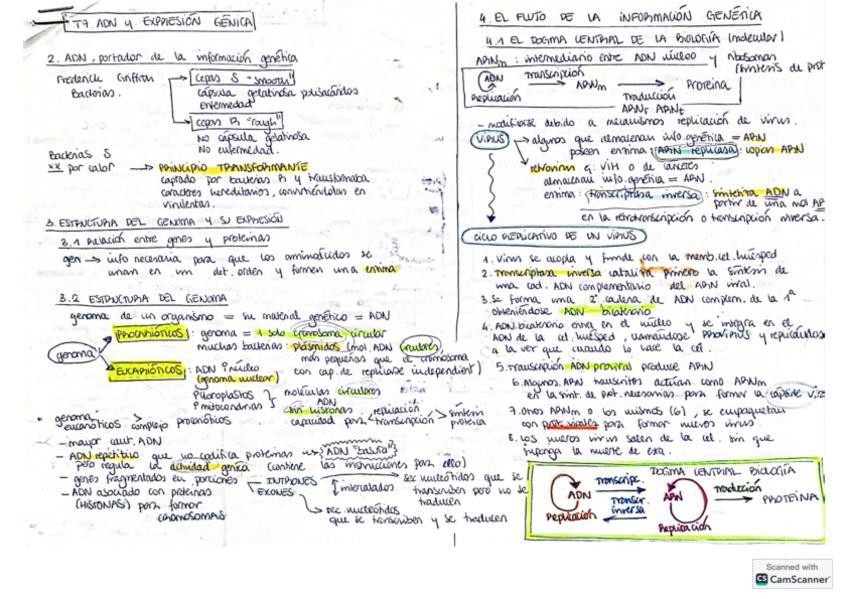 T7. ADN y EXPRESIÓN GÉNICA
2. ADN, portador de la información genética
Frederick Griffith
Bacterias.
cepas S "smooth"
cápsula gelatinosa polisacáridos
Enfermedad
cepas R "rough"
NO cápsula gelatinosa
NO enfermedad.
Bacterias S
xx por calor → PRINCIPIO TRANSFORMANTE
captado por bacterias R y transformaba
caracteres hereditarios, convirtiéndolas en
virulentas.
3. ESTRUCTURA DEL GENOMA Y SU EXPRESIÓN
3.1 Relación entre genes y proteínas
gen → info necesaria para que los aminoácidos se
unan en un det. orden y formen una enzima
3.2 ESTRUCTURA DEL GENOMA
genoma de un organismo = su material genético = ADN
genoma
PROCARIÓTICOS: genoma = 1 solo cromosoma circular
muchas bacterias: plásmidos (mol. ADN circulares)
más pequeñas que el cromosoma
con cap. de replicarse independient)
EUCARIÓTICOS: ADN núcleo
(genoma nuclear)
Y cloroplastos
y mitocondrias
moléculas circulares
ADN
sin histonas
capacidad para
replicación
transcripción
síntesis
proteica
· genoma
eucarióticos > complejo procarióticos
- mayor cant. ADN
- ADN repetitivo que no codifica proteínas → "ADN basura"
pero regula la actividad génica (contiene las instrucciones para ello)
- genes fragmentados en porciones
INTRONES → sec. nucleótidos que se
transcriben pero no se
traducen
intercalados
EXONES → sec. nucleótidos
que se transcriben y se traducen
- ADN asociado con proteínas
(HISTONAS) para formar
cromosomas
4. EL FLUJO DE LA INFORMACIÓN GENÉTICA
4.1 EL DOGMA CENTRAL DE LA BIOLOGÍA (molecular)
ARNm: intermediario entre ADN núcleo y ribosomas
(síntesis de prot
ADN transcripción → ARNm → Proteína
Replicación
Traducción
ARNr ARNt
- modificarse debido a mecanismos replicación de virus.
VIRUS → algunos que almacenan info. genética = ARN
poseen enzima: ARN replicasa: copias ARN
retrovirus ej: VIH o de cánceres
almacenan info. genética = ARN.
enzima: transcriptasa inversa: sintetiza ADN a
partir de una mol AR
en la retrotranscripción o transcripción inversa.
CICLO REPLICATIVO DE UN VIRUS
1. Virus se acopla y funde con la memb. cel. huésped
2. Transcriptasa inversa cataliza primero la síntesis de
una cad. ADN complementario del ARN viral.
3. Se forma una 2ª cadena de ADN complem. de la 1ª
obteniéndose ADN bicatenario
4. ADN bicatenario entra en el núcleo y se integra en el
ADN de la cel. huésped, llamándose provirus y replicándolo
a la vez que cuando lo hace la cel.
5. transcripción ADN proviral produce ARN
6. Algunos ARN transcritos actúan como ARNm
en la sínt. de prot. necesarias para formar la cápside vír
7. Otros ARNm o los mismos (6), se empaquetan
con prot. virales para formar nuevos virus
8. Los nuevos virus salen de la cel. sin que
suponga la muerte de esta.
DOGMA CENTRAL BIOLOGÍA
ADN Transcripc. → ARN Traducción → PROTEÍNA
Transcr. inversa
Replicación
Replicación
Scanned with
CS CamScanner